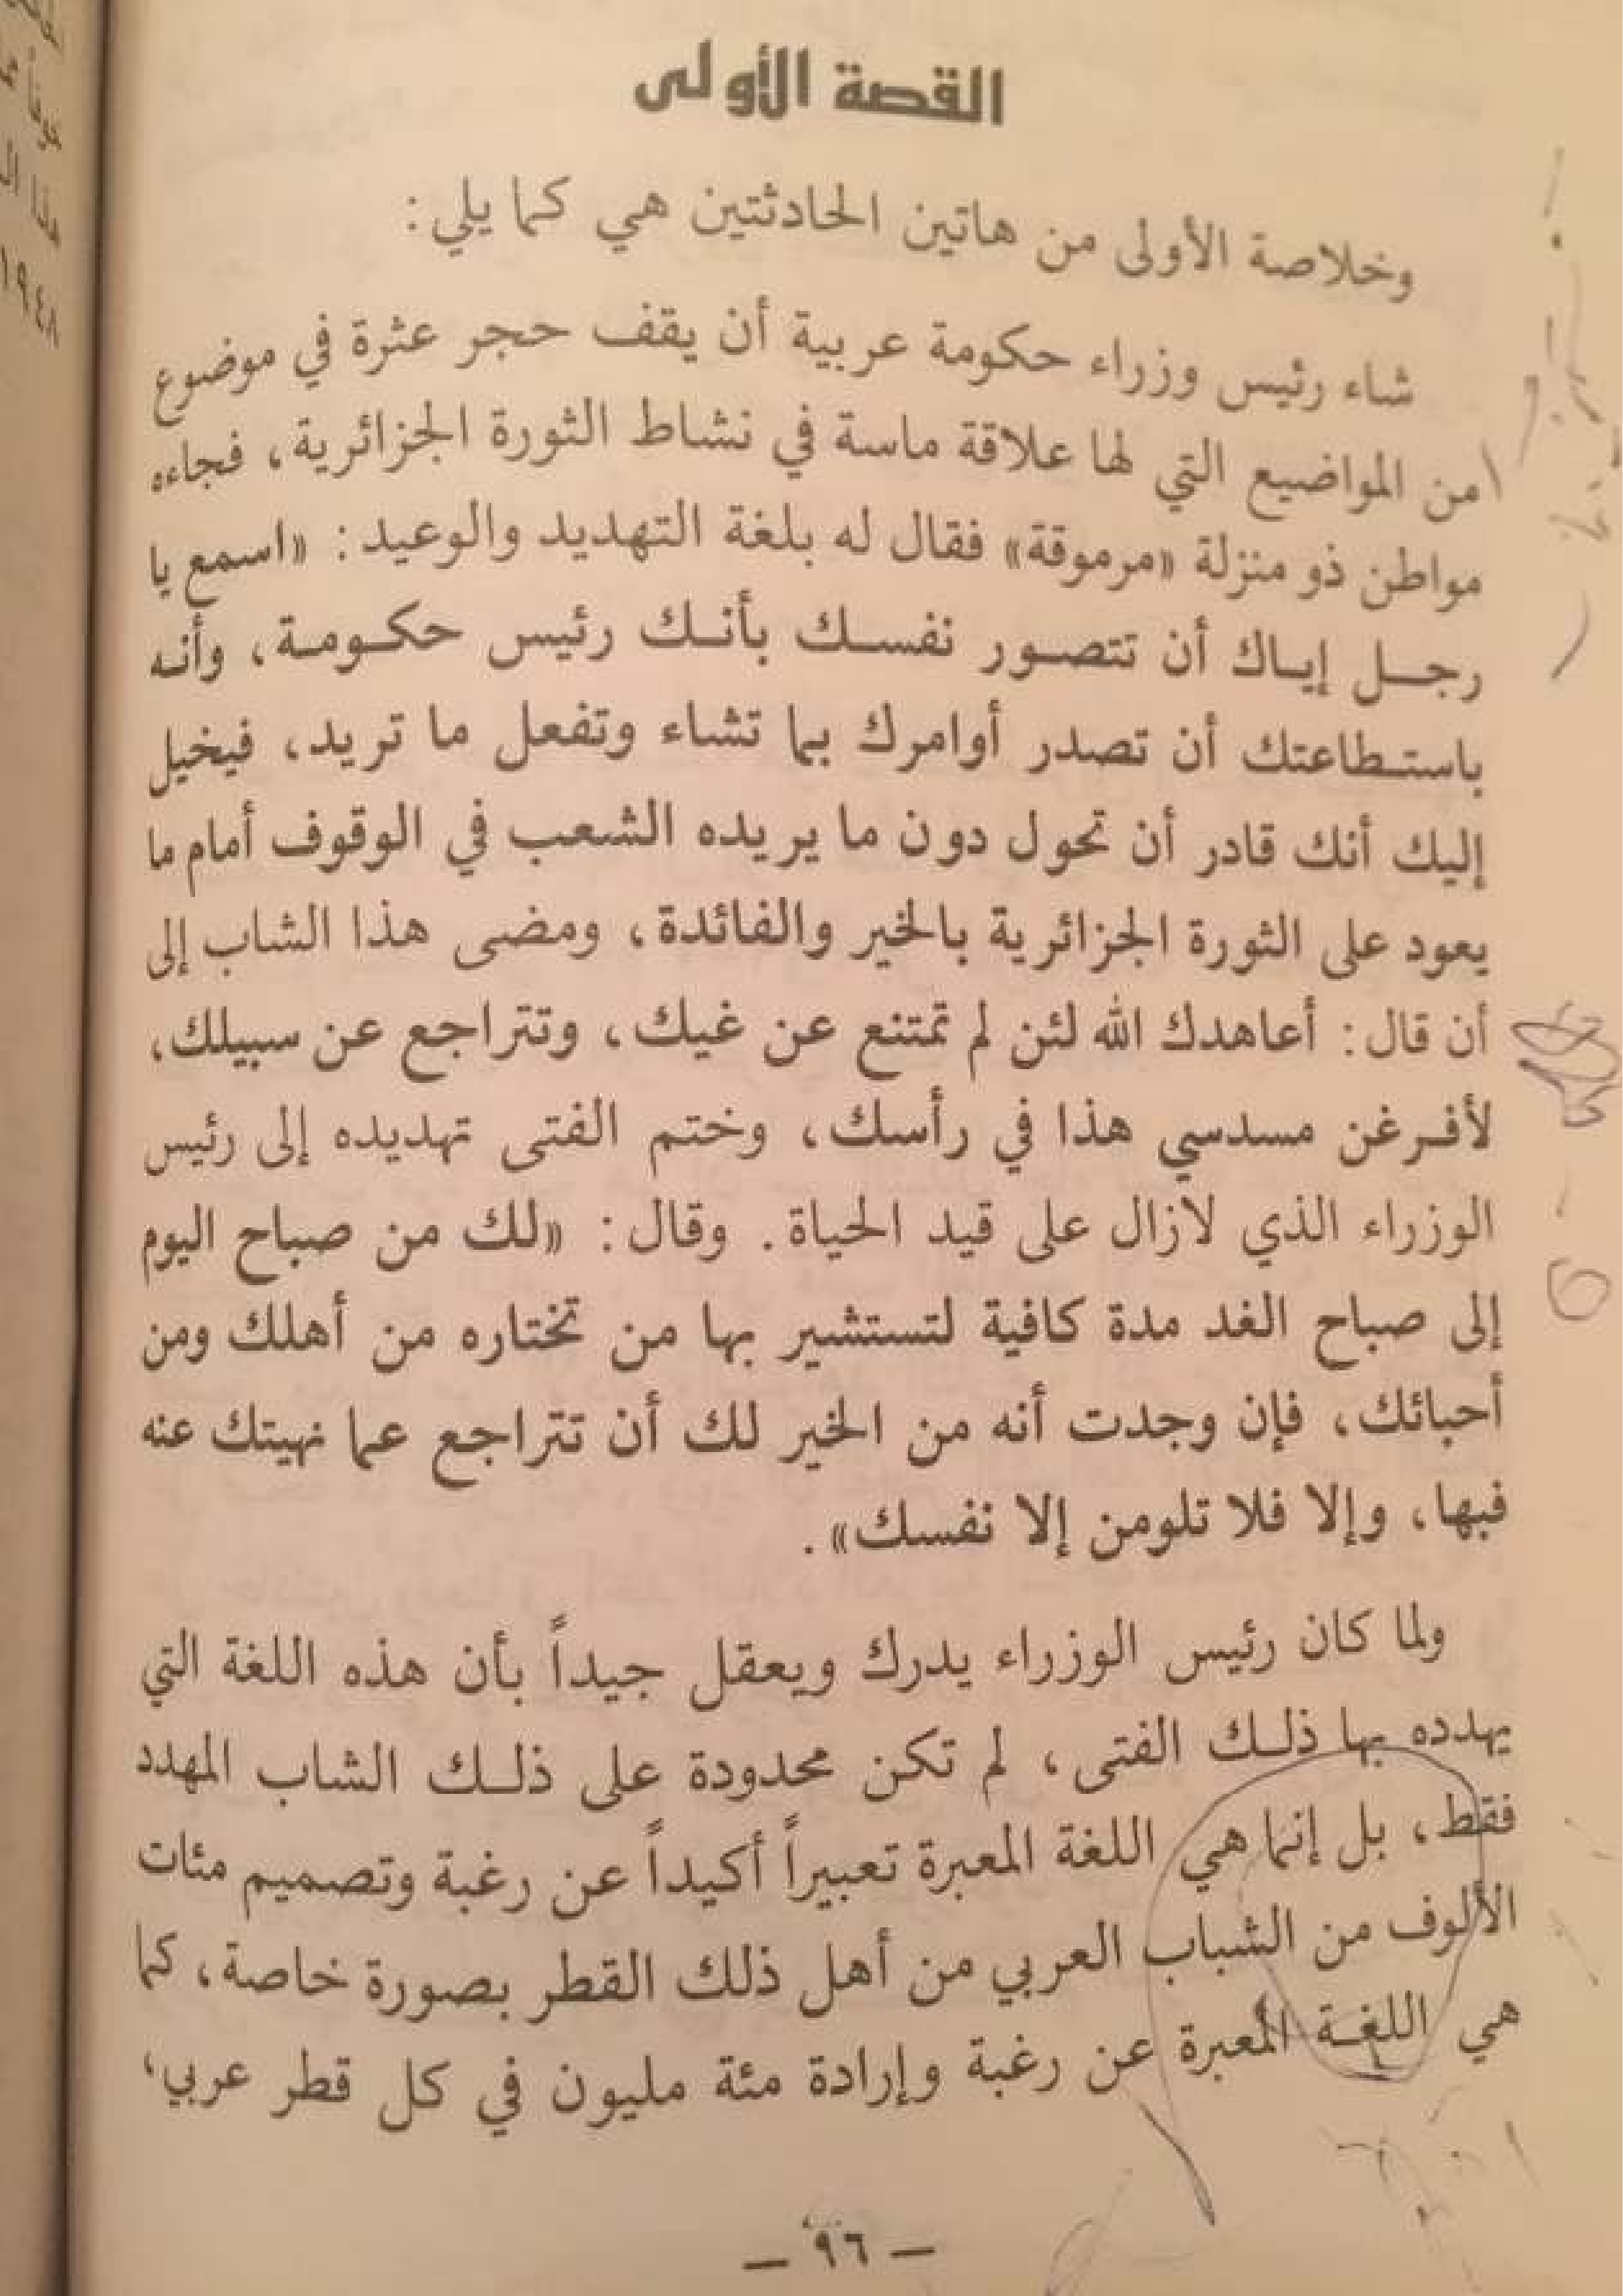 القصة الأولى
وخلاصة الأولى من هاتين الحادثتين هي كما يلي :
شاء رئيس وزراء حكومة عربية أن يقف حجر عثرة في موضوع
من المواضيع التي لها علاقة ماسة في نشاط الثورة الجزائرية ، فجاءه
مواطن ذو منزلة «مرموقة» فقال له بلغة التهديد والوعيد : «اسمع يا
رجل إياك أن تتصور نفسك بأنك رئيس حكومة ، وأنه
باستطاعتك أن تصدر أوامرك بما تشاء وتفعل ما تريد ، فيخيل
إليك أنك قادر أن تحول دون ما يريده الشعب في الوقوف أمام ما
يعود على الثورة الجزائرية بالخير والفائدة ، ومضى هذا الشاب إلى
أن قال : أعاهدك الله لئن لم تمتنع عن غيك ، وتتراجع عن سبيلك ،
لأفرغن مسدسي هذا في رأسك ، وختم الفتى تهديده إلى رئيس
الوزراء الذي لازال على قيد الحياة . وقال : «لك من صباح اليوم
إلى صباح الغد مدة كافية لتستشير بها من تختاره من أهلك ومن
أحبائك ، فإن وجدت أنه من الخير لك أن تتراجع عما نهيتك عنه
فبها ، وإلا فلا تلومن إلا نفسك» .
ولما كان رئيس الوزراء يدرك ويعقل جيداً بأن هذه اللغة التي
يهدده بها ذلك الفتى ، لم تكن محدودة على ذلك الشاب المهدد
فقط ، بل إنما هي اللغة المعبرة تعبيراً أكيداً عن رغبة وتصميم مئات
الألوف من الشباب العربي من أهل ذلك القطر بصورة خاصة ، كما
هي اللغة المعبرة عن رغبة وإرادة مئة مليون في كل قطر عربي ،
— ٩٦ —